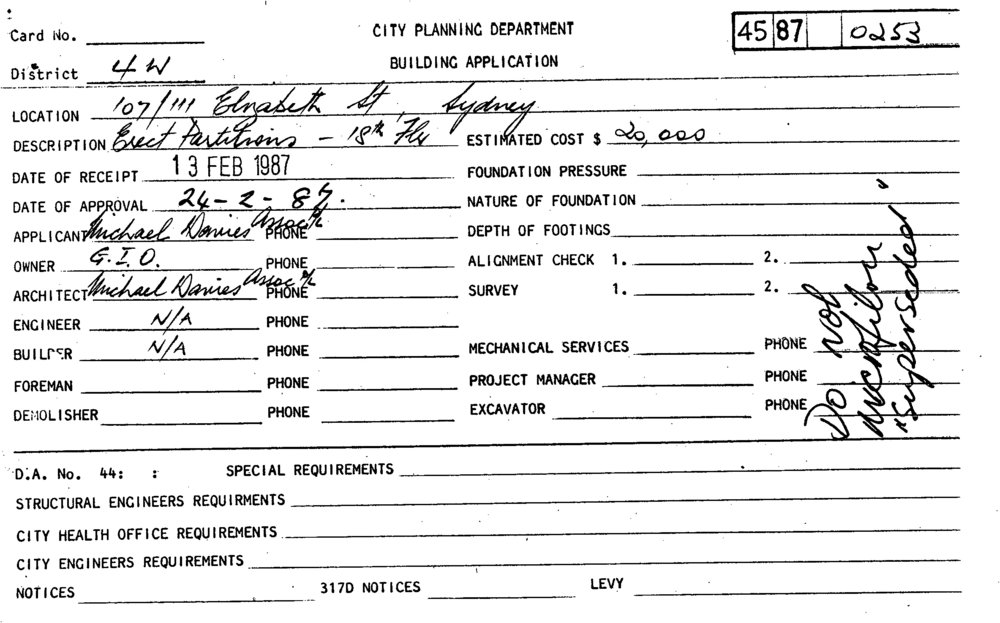 Card No. CITY PLANNING DEPARTMENT 45 87 0253
District 4W BUILDING APPLICATION
LOCATION 107/111 Elizabeth St, Sydney
DESCRIPTION Erect Partitions - 18th Flr ESTIMATED COST $ 20,000
DATE OF RECEIPT 13 FEB 1987 FOUNDATION PRESSURE
DATE OF APPROVAL 24-2-87. NATURE OF FOUNDATION
APPLICANT Michael Davies Assoc P/L PHONE DEPTH OF FOOTINGS
OWNER G.I.O. PHONE ALIGNMENT CHECK 1. 2.
ARCHITECT Michael Davies Assoc P/L PHONE SURVEY 1. 2.
ENGINEER N/A PHONE
BUILDER N/A PHONE MECHANICAL SERVICES PHONE
FOREMAN PHONE PROJECT MANAGER PHONE
DEMOLISHER PHONE EXCAVATOR PHONE
Do not
microfilm
"Superseded"
D.A. No. 44: : SPECIAL REQUIREMENTS
STRUCTURAL ENGINEERS REQUIRMENTS
CITY HEALTH OFFICE REQUIREMENTS
CITY ENGINEERS REQUIREMENTS
NOTICES 317D NOTICES LEVY